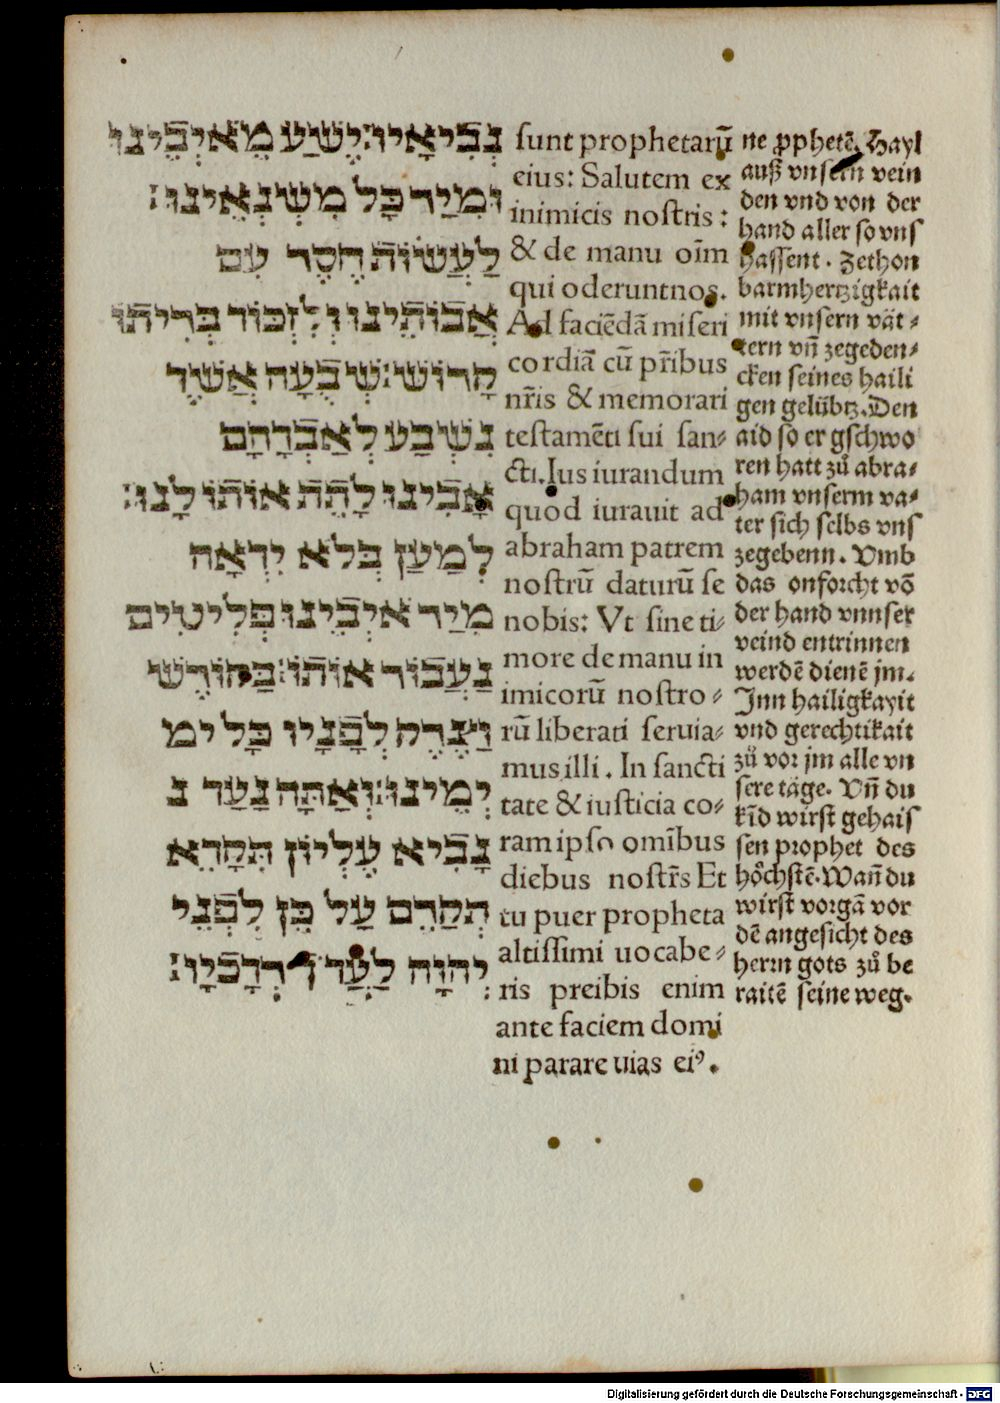 נְבִיאָיו׃יֶשַׁע מֵאֹיְבֵינוּ
וּמִיַד כָּל מִשְׂנְאֵינוּ׃
לַעֲשׂוֹת חֶסֶד עִם
אֲבוֹתֵינוּ וְלִזְכּוֹר בְּרִיתוֹ
קָדוֹשׁ׃שְׁבֻעָה אֲשֶׁר
נִשְׁבַע לְאַבְרָהָם
אָבִינוּ לָתֵת אוֹתוֹ לָנוּ׃
לְמַעַן בְּלֹא יִרְאָה
מִיַד אֹיְבֵינוּ פְּלִיטִים
נַעֲבוֹד אוֹתוֹ׃בַּקוֹדֶשׁ
וַצֶּדֶק לְפָנָיו כָּל ימ
יְמֵינוּ׃וְאַתָּה נָעַר נ
נָבִיא עֶלְיוֹן תִּקָּרֵא
תְקַדֵּם עַל כֵּן לִפְנֵי
יְהוָה לַעַד דְרָכָיו׃
sunt prophetarū
eius: Salutem ex
inimicis nostris:
& de manu oīm
qui oderunt nos.
Ad faciēdā miseri
cordiā cū pr̄ibus
nr̄is & memorari
testamēti sui san-
cti. Ius iurandum
quod iurauit ad
abraham patrem
nostrū daturū se
nobis: Vt sine ti-
more de manu in
imicorū nostro-
rū liberati seruia-
mus illi. In sancti
tate & iusticia co-
ram ipso omībus
diebus nostr̄s Et
tu puer propheta
altissimi uocabe-
ris preibis enim
ante faciem domi
ni parare uias eiꝰ.
ne ꝓphetē. Hayl
auß vnsern vein
den vnd von der
hand aller so vns
hassent. Zethon
barmhertzigkait
mit vnsern vät-
tern vn̄ zegeden-
cken seines haili
gen gelübtz. Den
aid so er gschwo
ren hatt zů abra-
ham vnserm va-
ter sich selbs vns
zegebenn. Vmb
das onforcht vō
der hand vnnser
veind entrinnen
werdē dienē jm.
Jnn hailigkayit
vnd gerechtikait
zů vor jm alle vn
sere täge. Vn̄ du
kīd wirst gehais
sen prophet des
höchstē. Wan̄ du
wirst vorgā vor
dē angesicht des
herrn gots zů be
raitē seine weg.
Digitalisierung gefördert durch die Deutsche Forschungsgemeinschaft - DFG